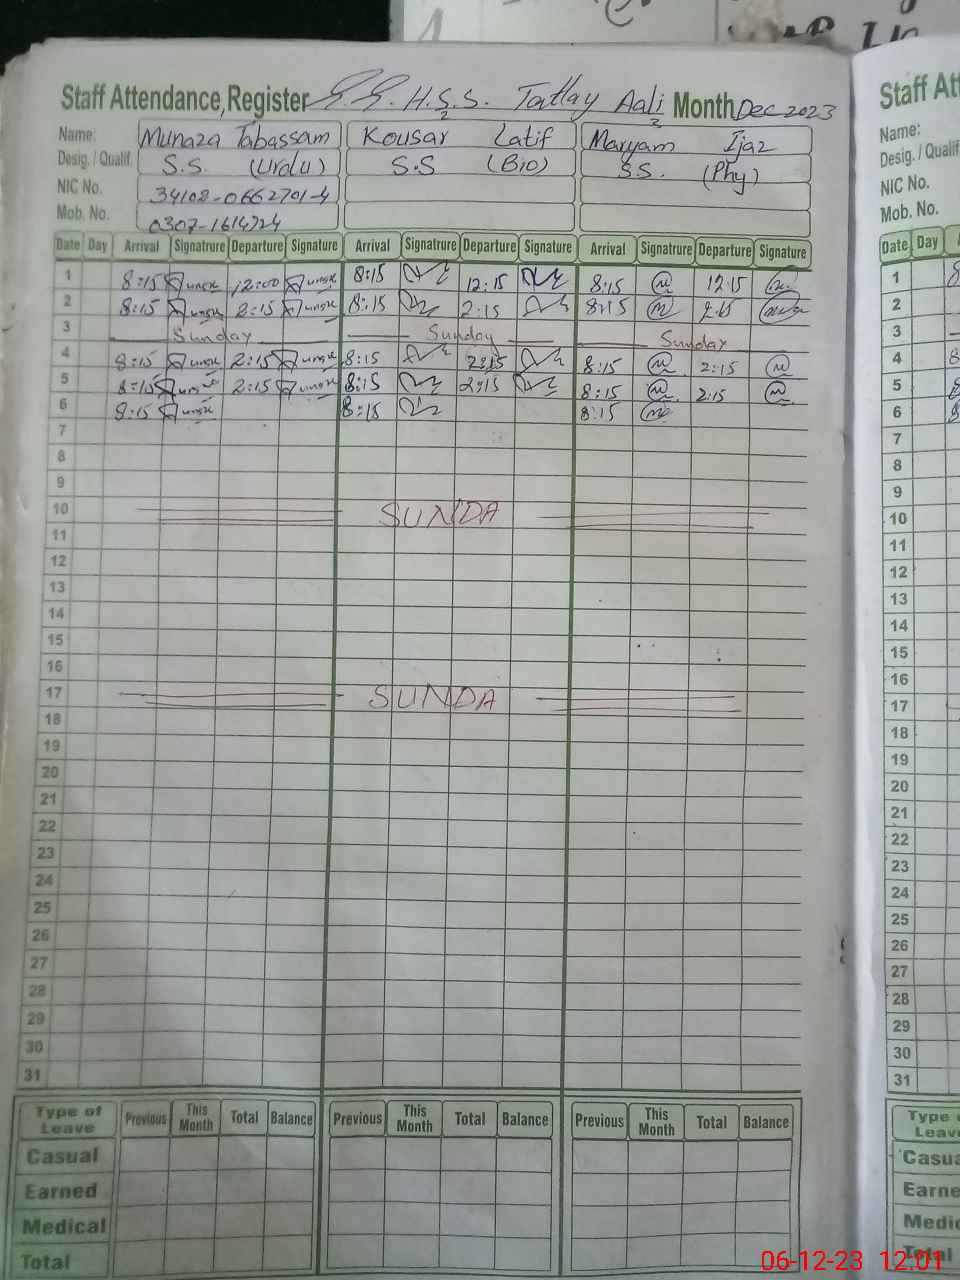 Staff Attendance Register G.G.H.S.S. Tatlay Aali Month Dec 2023
Staff Att
Name: Munaza Tabassam Kousar Latif Maryam Ijaz
Name:
Desig. / Qualif. S.S. (Urdu) S.S (Bio) SS. (Phy)
Desig. / Qualif
NIC No. 34102-0662701-4
NIC No.
Mob. No. 0307-1614724
Mob. No.
Date Day Arrival Signatrure Departure Signature Arrival Signatrure Departure Signature Arrival Signatrure Departure Signature
Date Day
1 8:15 12:00 8:15 12:15 8:15 12.15
1
2 8:15 2:15 8:15 2:15 8:15 2:15
2
3 Sunday Sunday Sunday
3
4 8:15 2:15 8:15 2:15 8:15 2:15
4
5 8:15 2:15 8:15 2:15 8:15 2:15
5
6 8:15 8:15 8:15
6
7
7
8
8
9
9
10 SUNDA
10
11
11
12
12
13
13
14
14
15
15
16
16
17 SUNDA
17
18
18
19
19
20
20
21
21
22
22
23
23
24
24
25
25
26
26
27
27
28
28
29
29
30
30
31
31
Type of Leave Previous This Month Total Balance Previous This Month Total Balance Previous This Month Total Balance
Type
Leave
Casual
Casua
Earned
Earne
Medical
Medic
Total
Total
06-12-23 12.01